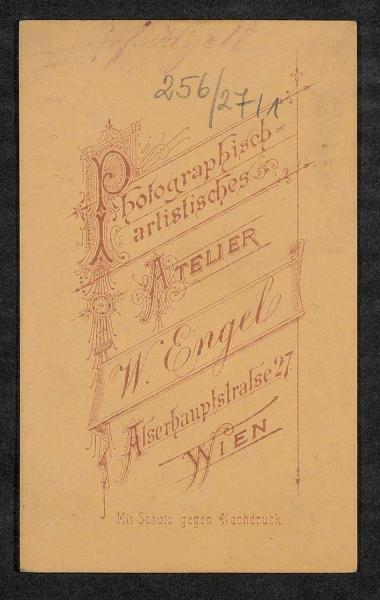 256/27/1
Photographisch=
artistisches
ATELIER
W. Engel
Alserhauptstraſse 27
WIEN
Mit Schutz gegen Nachdruck.